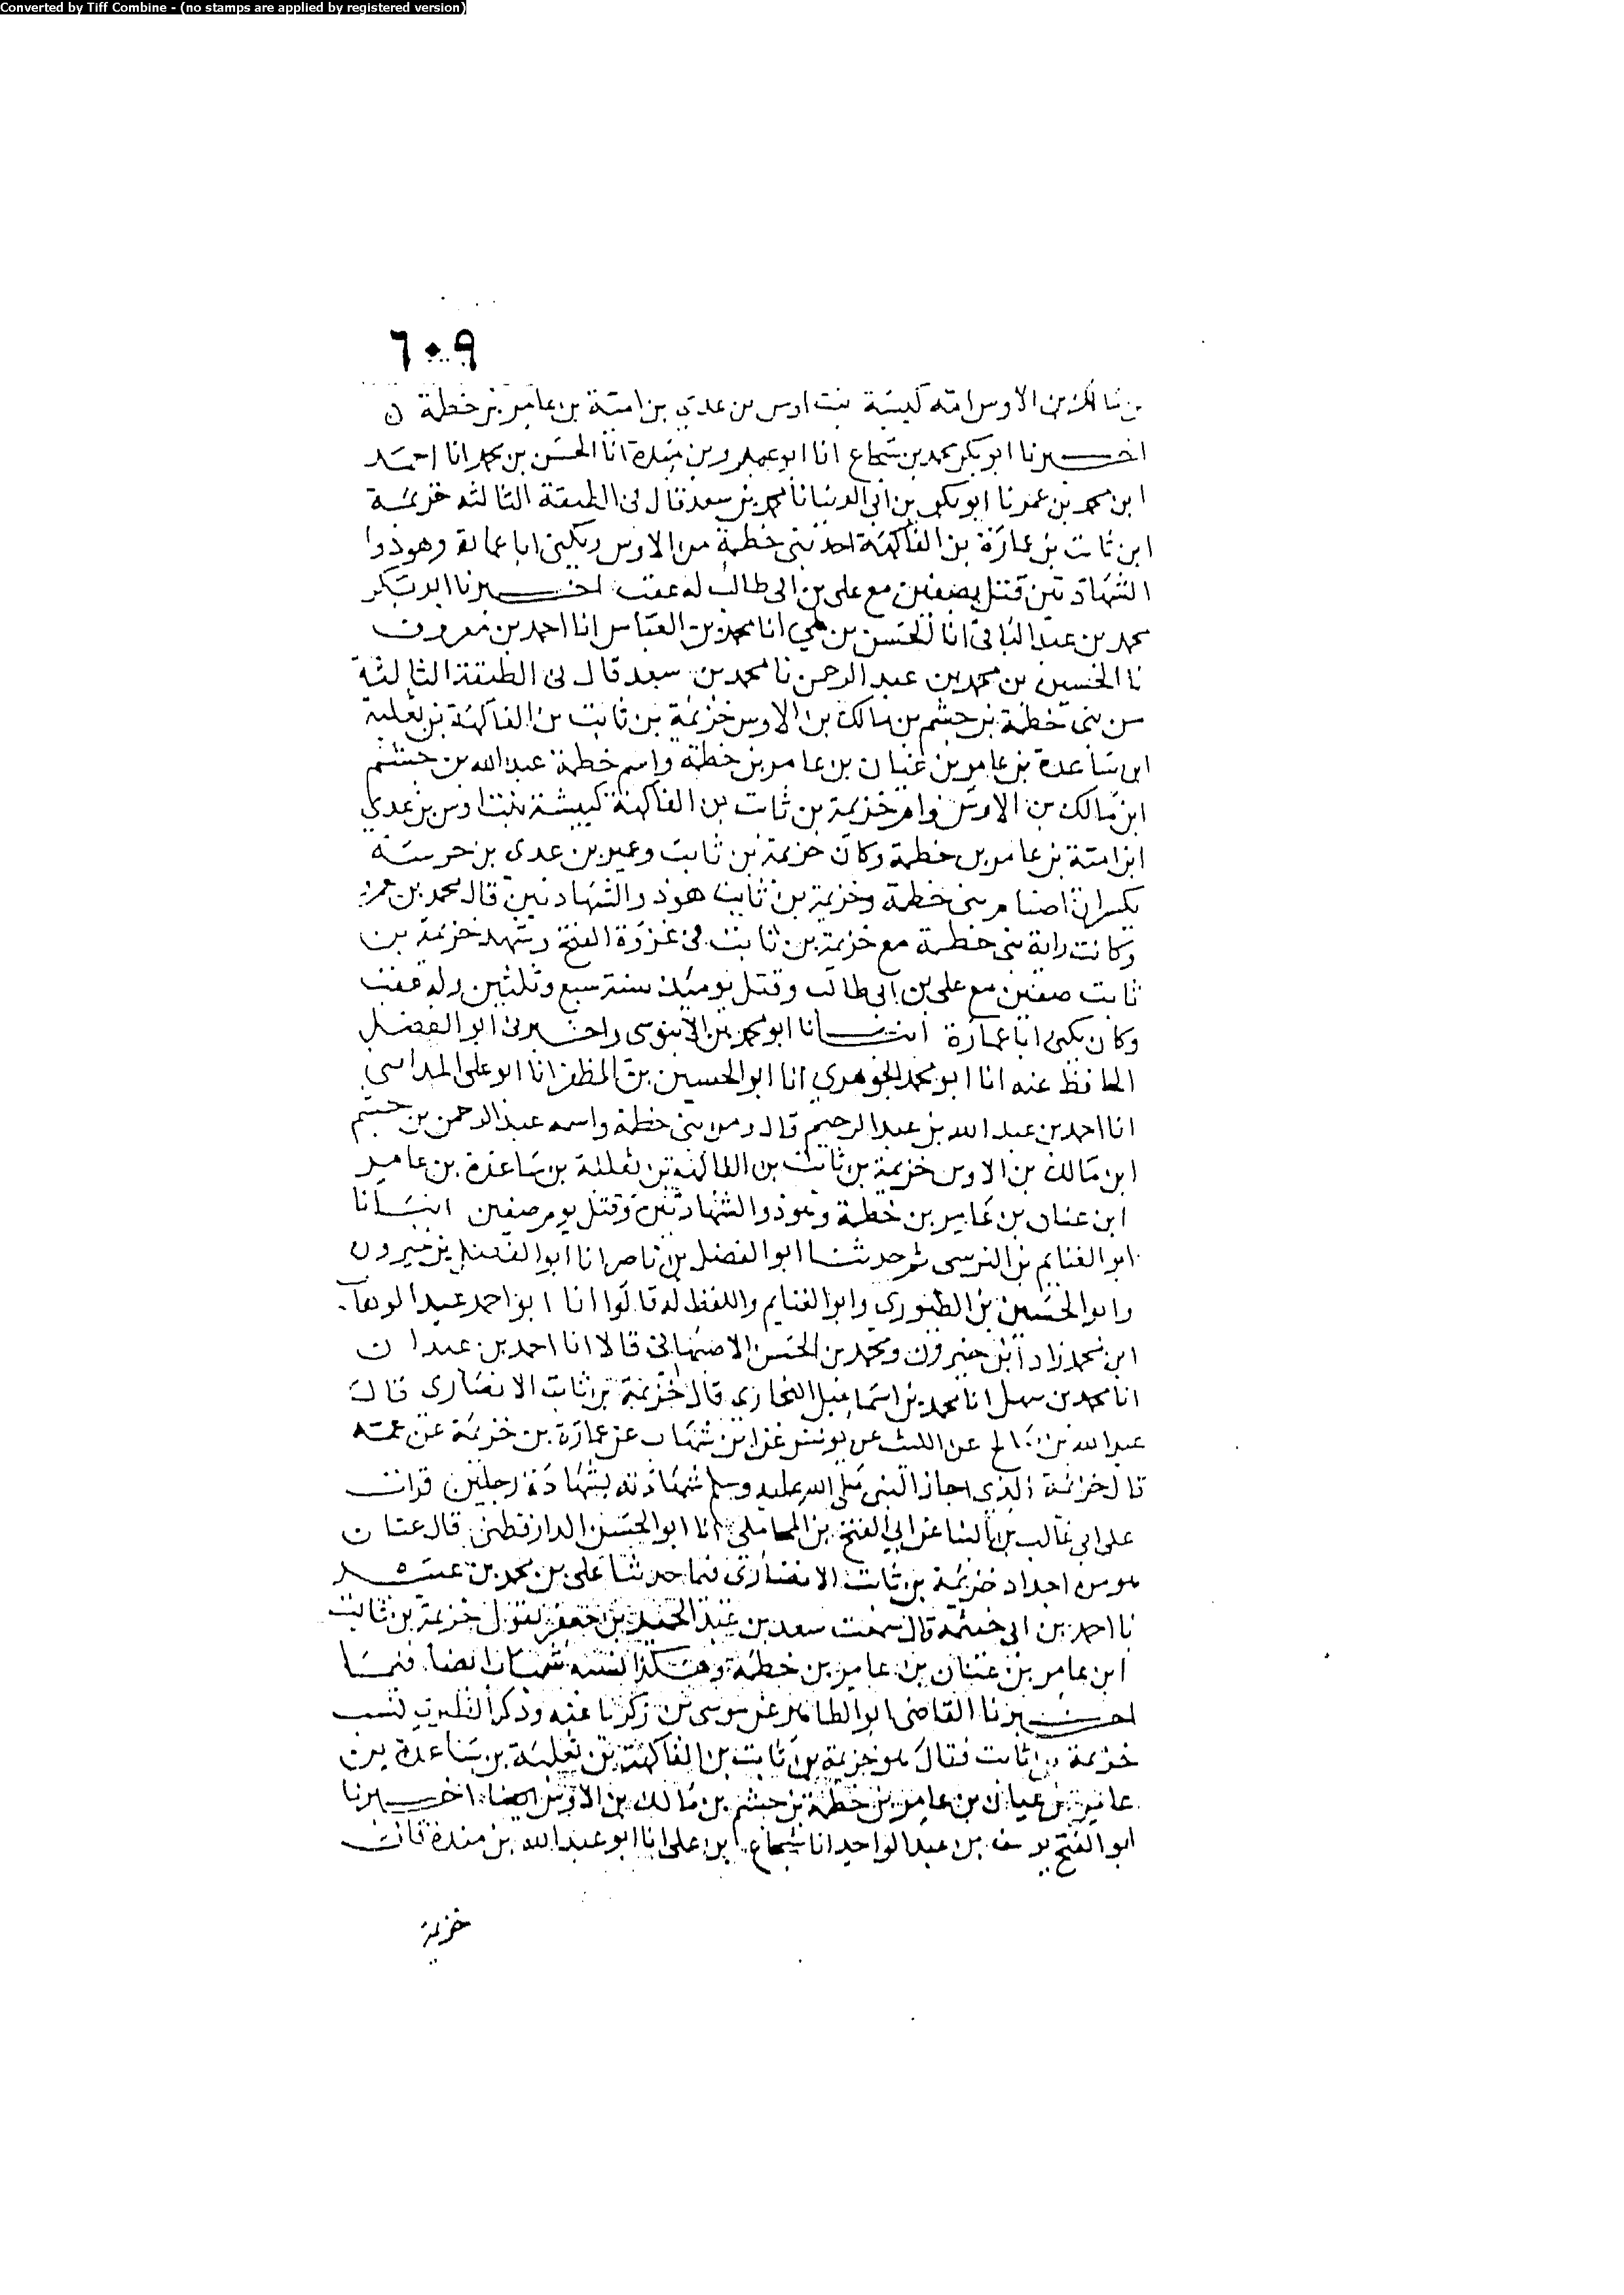 Converted by Tiff Combine - (no stamps are applied by registered version)
٦٠٩
بن مالك بن الاوس امه كبيشة بنت اوس بن عدي بن امية بن عامر بن خطمة ن
اخبرنا ابو بكر محمد بن شجاع انا ابو عمرو بن مندة انا الحسن بن محمد انا احمد
ابن محمد بن عمر نا ابو بكر بن ابي الدنيا نا محمد بن سعد قال في الطبقة الثالثه خزيمة
ابن ثابت بن عمارة بن الفاكهة احد بني خطمة من الاوس ويكنى ابا عمارة وهو ذوا
الشهادتين قتل بصفين مع علي بن ابي طالب له عقب اخبرنا ابو بكر
محمد بن عبد الباقي انا الحسن بن علي انا محمد بن العباس انا احمد بن معروف
نا الحسين بن محمد بن عبد الرحمن نا محمد بن سعد قال في الطبقة الثالثة
من بني خطمة بن جشم بن مالك بن الاوس خزيمة بن ثابت بن الفاكهة بن ثعلبة
ابن ساعدة بن عامر بن غيان بن عامر بن خطمة واسم خطمة عبد الله بن جشم
ابن مالك بن الاوس وام خزيمة بن ثابت بن الفاكهة كبيشة بنت اوس بن عدي
ابن امية بن عامر بن خطمة وكان خزيمة بن ثابت وعمير بن عدي بن خرشة
يكسران اصنام بني خطمة وخزيمة بن ثابت هو ذو الشهادتين قال محمد بن عمر
وكانت راية بني خطمة مع خزيمة بن ثابت في غزوة الفتح وشهد خزيمة بن
ثابت صفين مع علي بن ابي طالب وقتل يوميذ سنة سبع وثلثين وله عقب
وكان يكنى ابا عمارة انبانا ابو محمد بن الآبنوسي واخبرني ابو الفضل
الحافظ عنه انا ابو محمد الجوهري انا ابو الحسين بن المظفر انا ابو علي المدايني
انا احمد بن عبد الله بن عبد الرحيم قال ومن بني خطمة واسمه عبد الرحمن بن جشم
ابن مالك بن الاوس خزيمة بن ثابت بن الفاكهة بن ثعلبة بن ساعدة بن عامر
ابن عنان بن عامر بن خطمة وهو ذو الشهادتين وقتل يوم صفين انبانا
ابو الغنايم بن النرسي ثم حدثنا ابو الفضل بن ناصر انا ابو الفضل بن خيرون
وابو الحسين بن الطيوري وابو الغنايم واللفظ له قالوا انا ابو احمد عبد الوهاب
ابن محمد زاد ابن خيرون ومحمد بن الحسن الاصبهاني قالا انا احمد بن عبدان
انا محمد بن سهل انا محمد بن اسماعيل البخاري قال خزيمة بن ثابت الانصاري قال
عبد الله بن صالح عن الليث عن يونس عن ابن شهاب عن عمارة بن خزيمة عن عمه
قال خزيمة الذي اجاز النبي صلى الله عليه وسلم شهادته بشهادة رجلين قرات
على ابي غالب بن البنا عن ابي الفتح بن المحاملي انا ابو الحسن الدارقطني قال عنان
هو من اجداد خزيمة بن ثابت الانصاري فيما حدثنا علي بن محمد بن عبيد
نا احمد بن ابي خيثمة قال سمعت سعد بن عبد الحميد بن جعفر يقول خزيمة بن ثابت
ابن عامر بن عنان بن عامر بن خطمة وهكذا نسبه شباب ايضا فيما
اخبرنا القاضي ابو الطاهر عن موسى بن زكريا عنه وذكر الطبري نسب
خزيمة بن ثابت فقال هو خزيمة بن ثابت بن الفاكهة بن ثعلبة بن ساعدة بن
عامر بن عيان بن عامر بن خطمة بن جشم بن مالك بن الاوس ايضا اخبرنا
ابو الفتح يوسف بن عبد الواحد انا شجاع بن علي انا ابو عبد الله بن مندة قال
خزيمة